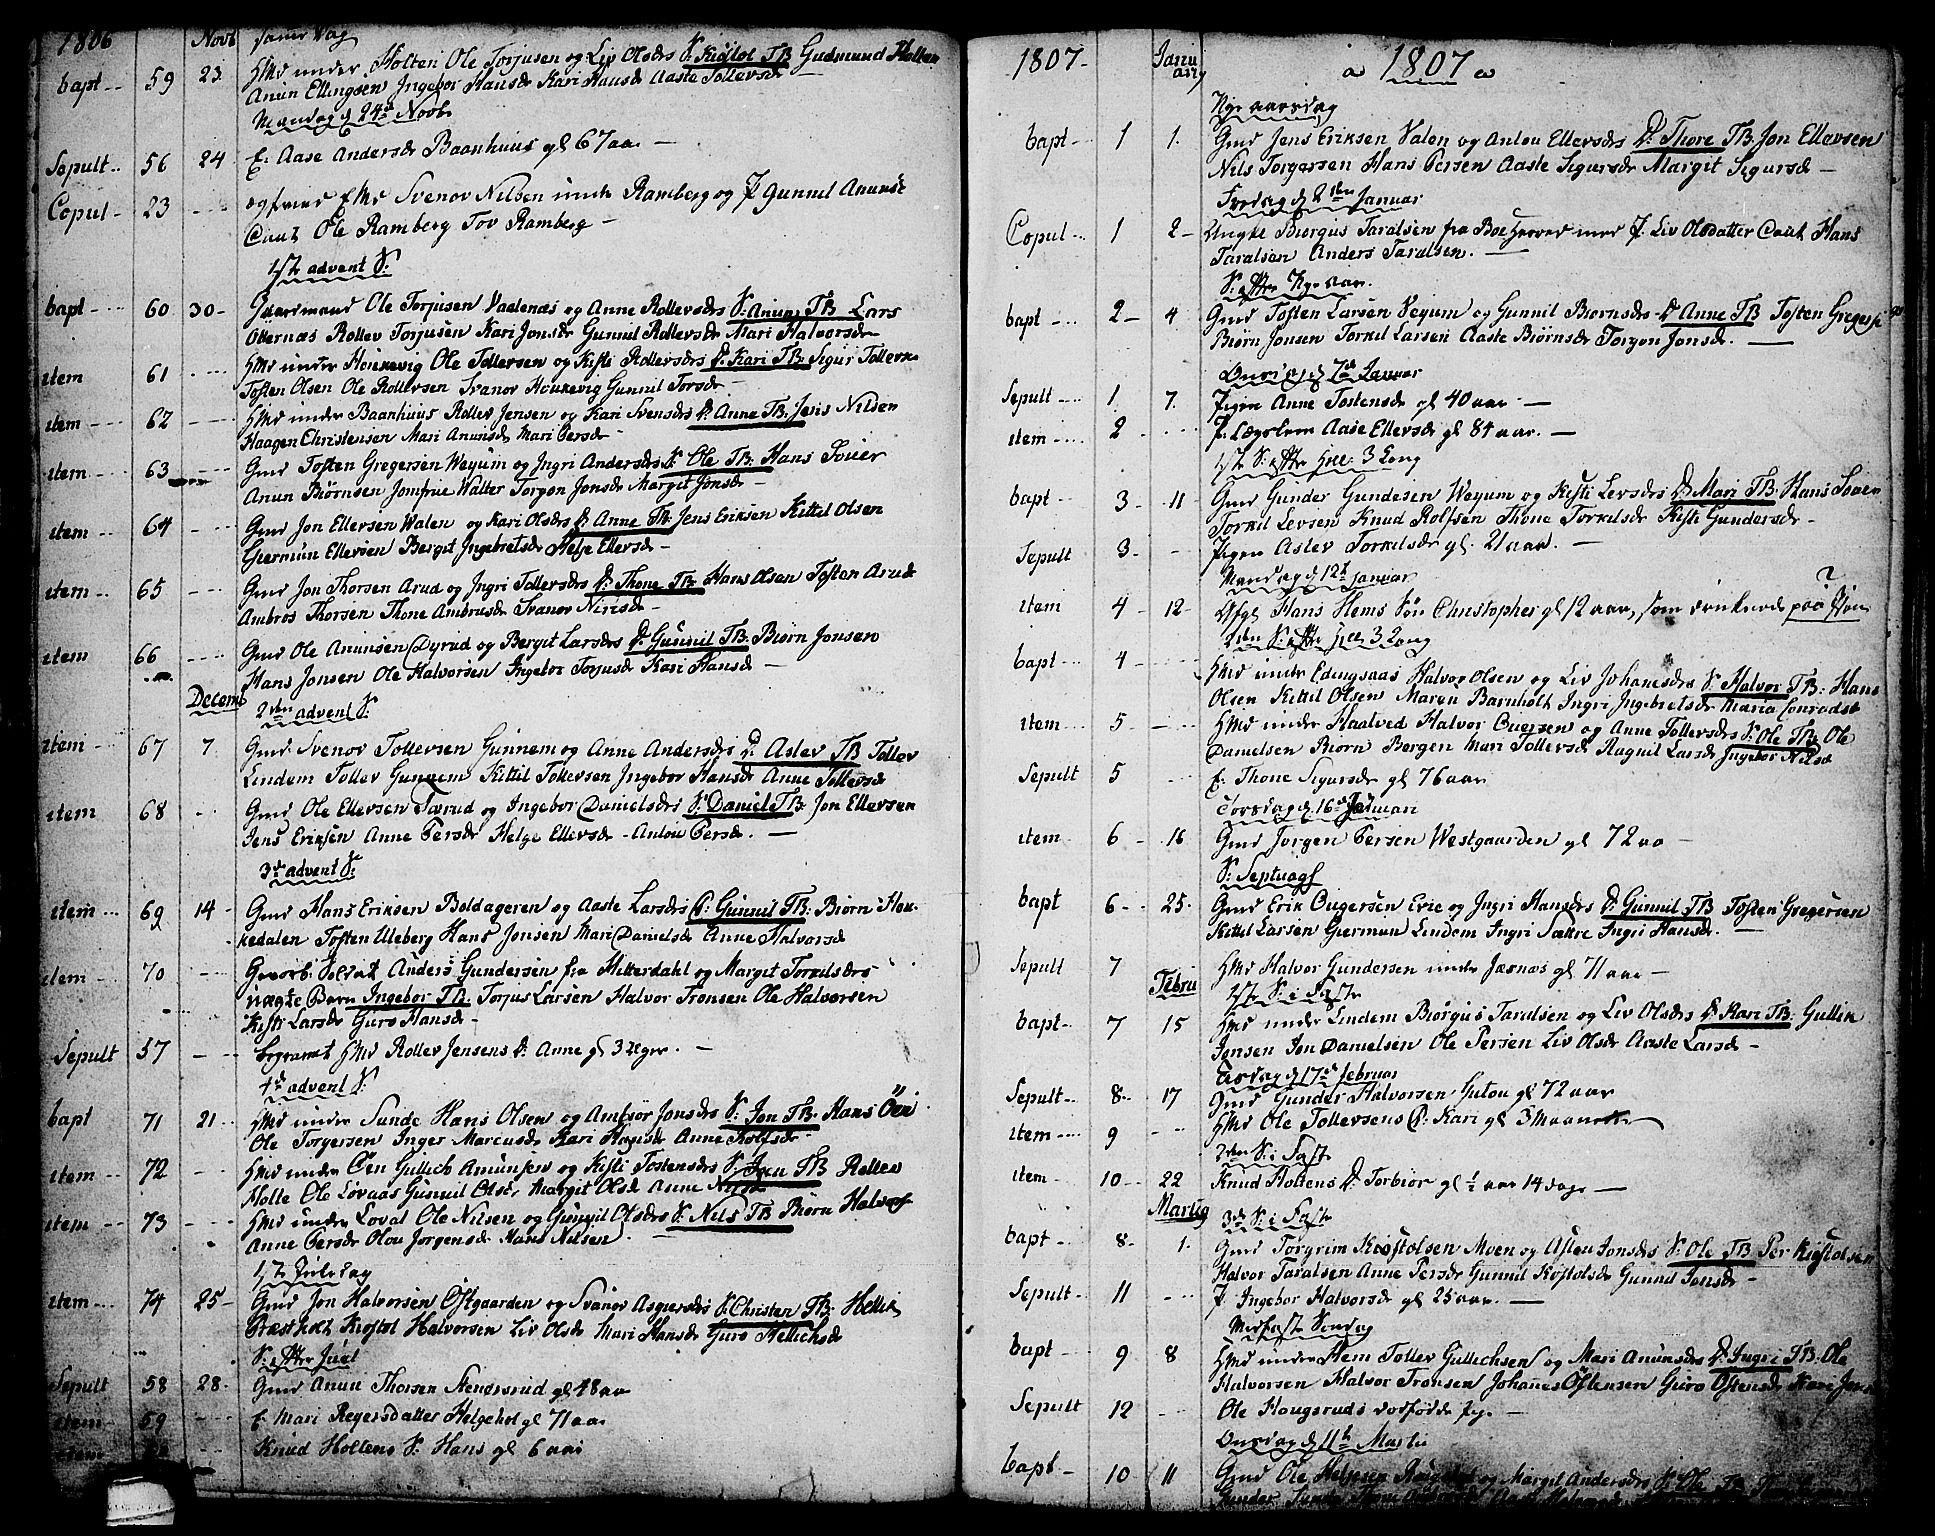 1806 Novb samme Dag
bapt 59 23 Hmd under Holten Ole Torjusen og Liv Olsdr S. Kiøstol TB Gudmund Holten
Anun Ellingsen Ingebor Hansdr Kari Hansdr Aaste Tollevsdr
Mandag d 24d Novb
Sepult 56 24 E. Aase Andersdr Baanhuus gl 67 aar
Copul 23 Svenov Nilsen under Ramberg og P Gunnil Anunsdr
Caut Ole Ramberg Tov Ramberg
1ste advent S:
bapt 60 30 Gaardmand Ole Torjusen Vaalenæs og Anne Rollevsdr S: Anun TB Lars
Otternæs Rollev Torjusen Kari Jonsdr Gunnil Rollevsdr Mari Halvorsdr
item 61 Hmd under Houkevig Ole Tollevsen og Kisti Rollevsdr D. Kari TB: Sigur Tollevs
Tosten Olsen Ole Rollevsen Svanov Houkevig Gunnil Torsdr
item 62 Hmd under Baanhuus Rollev Jensen og Kari Svensdr D. Anne TB: Jens Nilsen
Haagen Christensen Mari Anunsdr Mari Persdr
item 63 Gmd Tosten Gregersen Weyum og Ingri Andersdr S. Ole TB: Hans
Anun Biørnsen Jomfrue Walter Torgon Jonsdr Margit Jonsdr
item 64 Gmd Jon Ellevsen Walen og Kari Olsdr D. Anne TB: Jens Eriksen Kittil Olsen
Giermun Ellevsen Bergit Ingebretsdr Helge Ellevsdr
item 65 Gmd Jon Thorsen Arud og Ingri Tollevsdr D: Thone TB Hans Olsen Tosten Arud
Ambros Thorsen Thone Ambrusdr Svanov Nirisdr
item 66 Gmd Ole Anunsen Dyrud og Bergit Larsdr D. Gunnil TB: Biørn Jonsen
Hans Jonsen Ole Halvorsen Ingebor Torjusdr Kari Hansdr
Decemb
2den advent S:
item 67 7. Gmd. Svenov Tollevsen Gunnem og Anne Andersdr D. Aslev TB Tollev
Lindem Tollev Gunnem Kittil Tollevsen Ingebor Hansdr Anne Tollevsdr
item 68 Gmd Ole Ellevsen Tærud og Ingebor Danielsdr S. Daniel TB: Jon Ellevsen
Jens Eriksen Anne Persdr Helge Ellevsdr Anlou Persdr.
3de advent S:
item 69 14 Gmd Hans Eriksen Boldageren og Aaste Larsdr D: Gunnil TB: Biørn Hok-
kedalen Tosten Uleberg Hans Jonsen Mari Danielsdr Anne Halvorsdr
item 70 Gevorb. Soldat Anders Gundersen fra Hitterdahl og Margit Torkilsdrs
uægte Barn Ingebor TB. Torjus Larsen Halvor Tronsen Ole Halvorsen
Kisti Larsdr Guro Hansdr
Sepult 57 Begravet Hmd Rollev Jensens D. Anne gl 3 Uger.
4de advent S:
bapt 71 21 Hmd under Sunde Hans Olsen og Ambiør Jonsdr S: Jon TB: Hans Öen
Ole Torgersen Inger Marcusdr Kari Hansdr Anne Rolfsdr
item 72 Hmd under Öen Gullich Amunsen og Kisti Tostensdr S: TB Rollev
Holte Ole Lovaas Gunnil Olsdr Margit Olsdr Anne Nilsdr
item 73 Hmd under Loval Ole Nilsen og Gunnil Olsdr S: Nils TB Biørn Halvors
Anne Persdr Olou Jorgensdr Hans Nilsen.
1ste Juledag
item 74 25 Gmd Jon Halvorsen Östgaarden og Svanov Asgiersdr S. Christen TB: Hellik
Præstholt Kiøstol Halvorsen Liv Olsdr Mari Hansdr Guro Hellichsdr
S: efter Juul
Sepult 58 28 Gmd Anun Thorsen Stenersrud gl 48 aar
item 59 E. Mari Reyersdatter Helgehol gl 71 aar
item Knud Holtens S: Hans gl 6 aar
1807 Januarij 1807
Nye aarsdag
bapt 1 1. Gmd Jens Eriksen Valen og Anlou Ellevsdr D. Thore TB. Jon Ellevsen
Nils Torgersen Hans Persen Aaste Sigursdr Margit Sigursdr
Fredag d 2den Januar
Copul 1 2 Ungke Biørgus Taralsen fra Boe med P. Liv Olsdatter Caut Hans
Taralsen Anders Taralsen.
S: efter Nye aar.
bapt 2 4 Gmd Tosten Larsen Veyum og Gunnil Biørnsdr D. Anne TB Tosten Gregers
Biørn Jonsen Torkil Larsen Aaste Biørnsdr Torgon Jonsdr.
Onsdag d 7de Januar
Sepult 1 7. Pigen Anne Tostensdr gl 40 aar
item 2 P. Lægslem Aase Ellevsdr gl 84 aar.
1ste S: efter Hell: 3 Kong
bapt 3 11 Gmd Gunder Gundesen Weyum og Kisti Levsdr D: Mari TB: Hans
Torkil Levsen Knud Rolfsen Thone Torkilsdr Kisti Gundersdr
Sepult 3 Pigen Aslev Torkilsdr gl. 21 aar.
Mandag d 12te Januar
item 4 12 Afgl Hans Hems Søn Christopher gl 12 aar, som druknede paa
2den S: efter Hell 3 Kong
bapt 4 Hmd under Edingsaas Halvor Olsen og Liv Johansdr S. Halvor TB: Hans
Olsen Kittil Olsen Maren Barnholt Ingri Ingebretsdr Maria Conradsdr
item 5 Hmd under Haatved Halvor Evensen og Anne Tollevsdr S: Ole TB: Ole
Danielsen Biørn Borgen Mari Tollevsdr Ragnil Larsdr Ingebor Nilsdr
Sepult 5 E. Thone Sigursdr gl 76 aar
Torsdag d. 16de Januari
item 6 16 Gmd Jorgen Persen Westgaarden gl 72 aar
S: Septuags
bapt 6 25 Gmd Erik Ougersen Erie og Ingri Hansdr D. Gunnil TB Tosten Gregersen
Kittil Larsen Giermun Lindem Ingri Sættre Ingri Hansdr.
Sepult 7 Hmd Halvor Gundersen under Jasnæs gl 71 aar
Febru
1ste S: i Faste
bapt 7 15 Hmd under Lindem Biørgus Taralsen og Liv Olsdr D. Kari TB: Gullik
Jonsen Jon Danielsen Ole Persen Liv Olsdr Aaste Larsdr
Tisdag d 17de februar
Sepult 8 17 Gmd Gunder Halvorsen Gutou gl 72 aar
item 9 Hmd Ole Tollevsens D: Kari gl 3 Maaneder
2den S: i Faste
item 10 22 Knud Holtens D. Torbiør gl ½ aar 14 dage
Martij
3de S: i Faste
bapt 8 1. Gmd Torgrim Kiøstolsen Moen og Aslou Jonsdr S: Ole TB Per Kiøstolsen
Halvor Taralsen Anne Persdr Gunnil Kiøstolsdr Gunnil Jonsdr
Sepult 11 P. Ingebor Halvorsdr gl 25 aar.
Midfaste Søndag
bapt 9 8 Hmd under Hem Tollev Gullichsen og Mari Anunsdr D. Ingri TB. Ole
Halvorsen Halvor Tronsen Johannes Östensen Guro Östensdr Kari Jons
Sepult 12 Ole Haugsruds dødfødde Pige
Onsdag d 11te Martii
bapt 10 11 Gmd Ole og Margit Andersdr S: Ole TB
Gunder